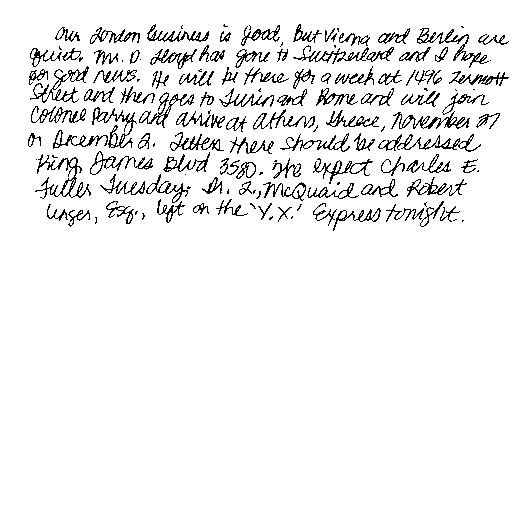 Our London business is good, but Vienna and Berlin are
quiet. Mr. D. Lloyd has gone to Switzerland and I hope
for good news. He will be there for a week at 1496 Zermott
Street and then goes to Turin and Rome and will join
Colonel Parry and arrive at Athens, Greece, November 27
or December 2. Letters there should be addressed
King James Blvd 3580. We expect Charles E.
Fuller Tuesday. Dr. L. McQuaid and Robert
Unger, Esq., left on the 'Y.X.' Express tonight.